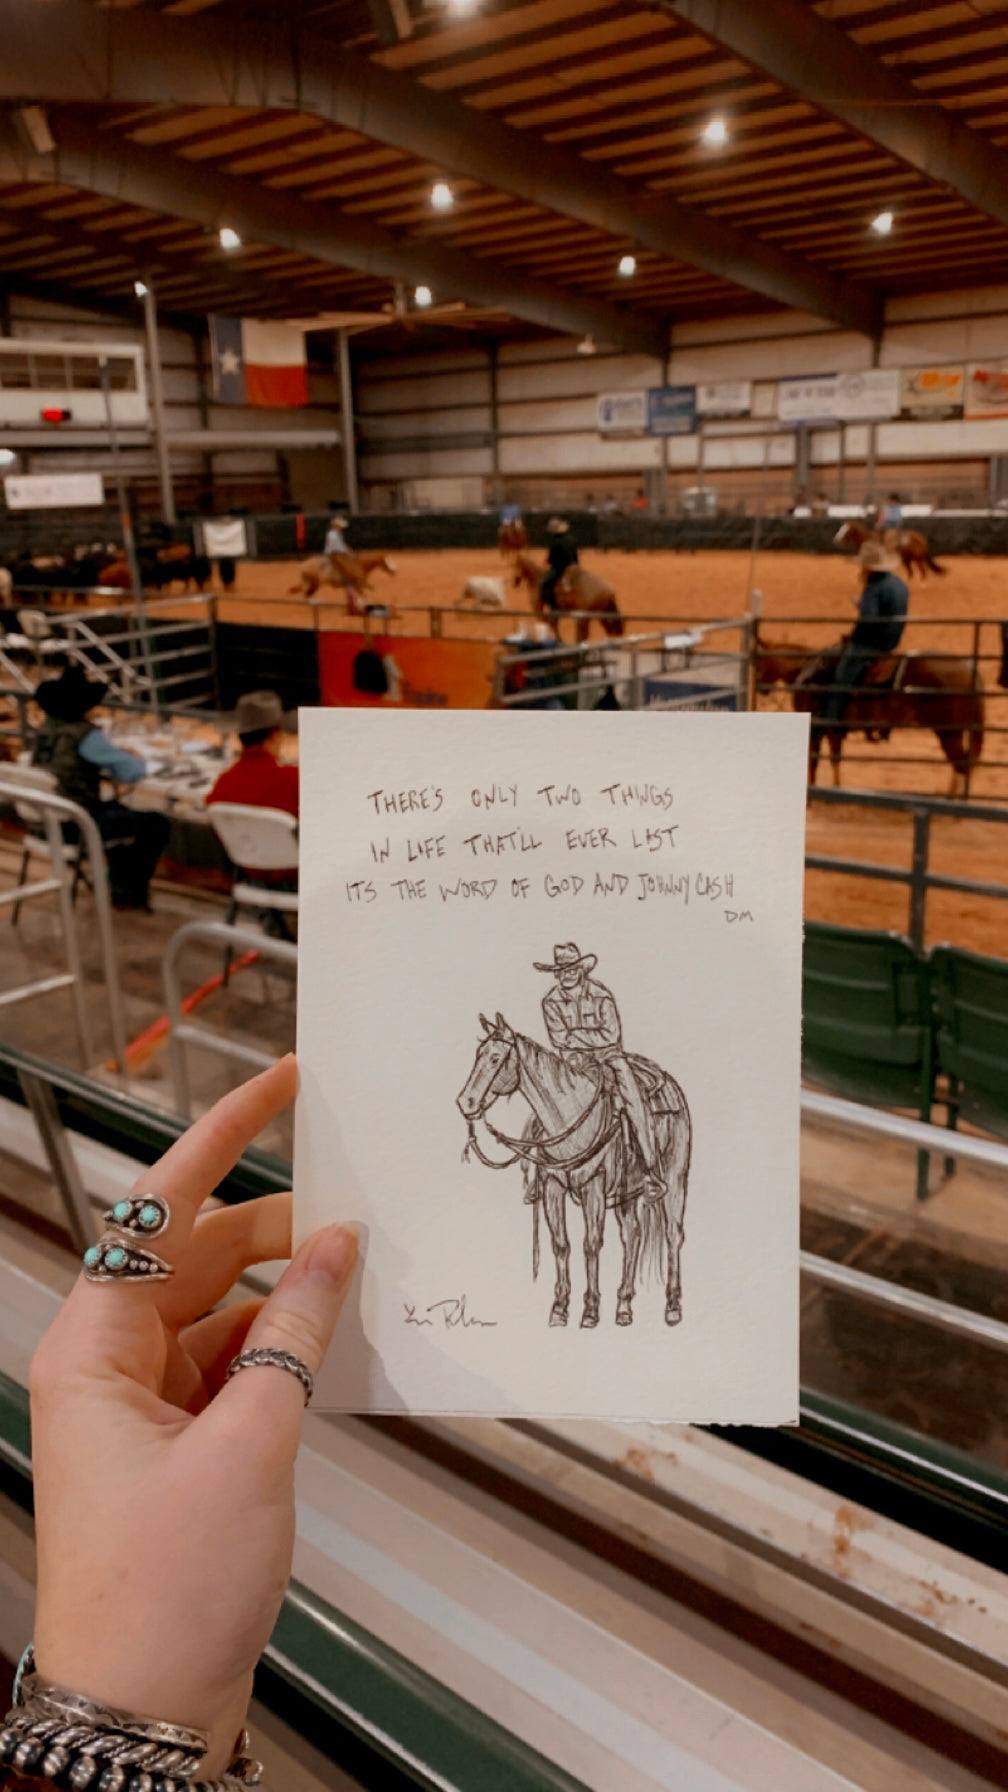 THERE'S ONLY TWO THINGS
IN LIFE THAT'LL EVER LAST
ITS THE WORD OF GOD AND JOHNNY CASH
DM